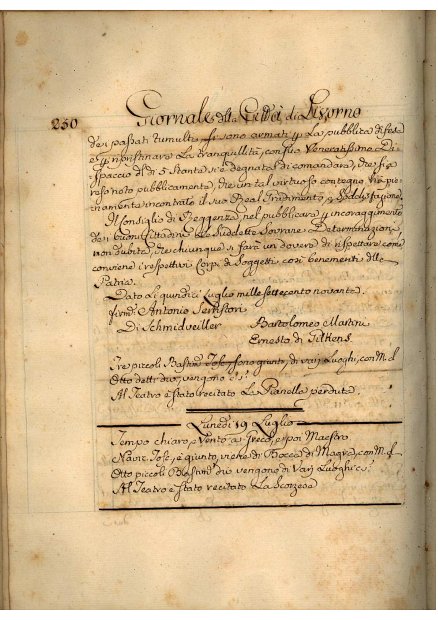 250
Giornale della Città di Livorno
dei passati tumulti si sono armati p la pubblica difesa
e p ripristinare la tranquillità, con suo Veneratissimo Di-
spaccio de 5 Stante si è degnata di comandare, che sia
reso noto pubblicamente, che un tal virtuoso contegno, ha pie-
namente incontrato il suo Real e Soddisfazione
Il Consiglio di Reggenza, nel pubblicare p incoraggimento
dei buoni Cittadini le suddette Sovrane Determinazioni,
non dubita, che chiunque si farà un dovere di rispettare come
conviene i respettivi Corpi di Soggetti così benemeriti della
Patria.
Dato li quindici Luglio mille settecento novanta.
firm. Antonio Serristori
Di Schmidveiller Bartolomeo Martini
Ernesto di Gilkens.
Tre piccoli Bastim. sono giunti, di varj Luoghi, con M. e
Otto detti due, vengono
Al Teatro è stato recitato La Pianella perduta.
Lunedì 19 Luglio
Tempo chiaro, e Vento a Greco, e poi Maestro
Nave Tosc. è giunto, viene di Bocca di Magra, con M. e
Otto piccoli Bastim. due vengono di Varj Luoghi
Al Teatro è stato recitato La Scozzese